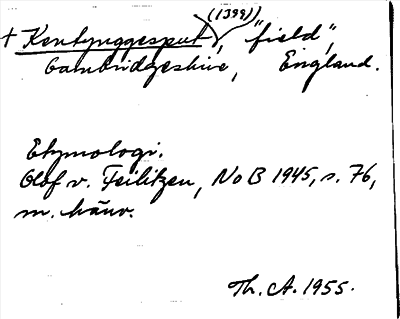 (1399)
+ Kentynggesput, "field",
Cambridgeshire, England.
Etymologi.
Olof v. Feilitzen, NoB 1945, s. 76,
m. hänv.
Th. A. 1955.